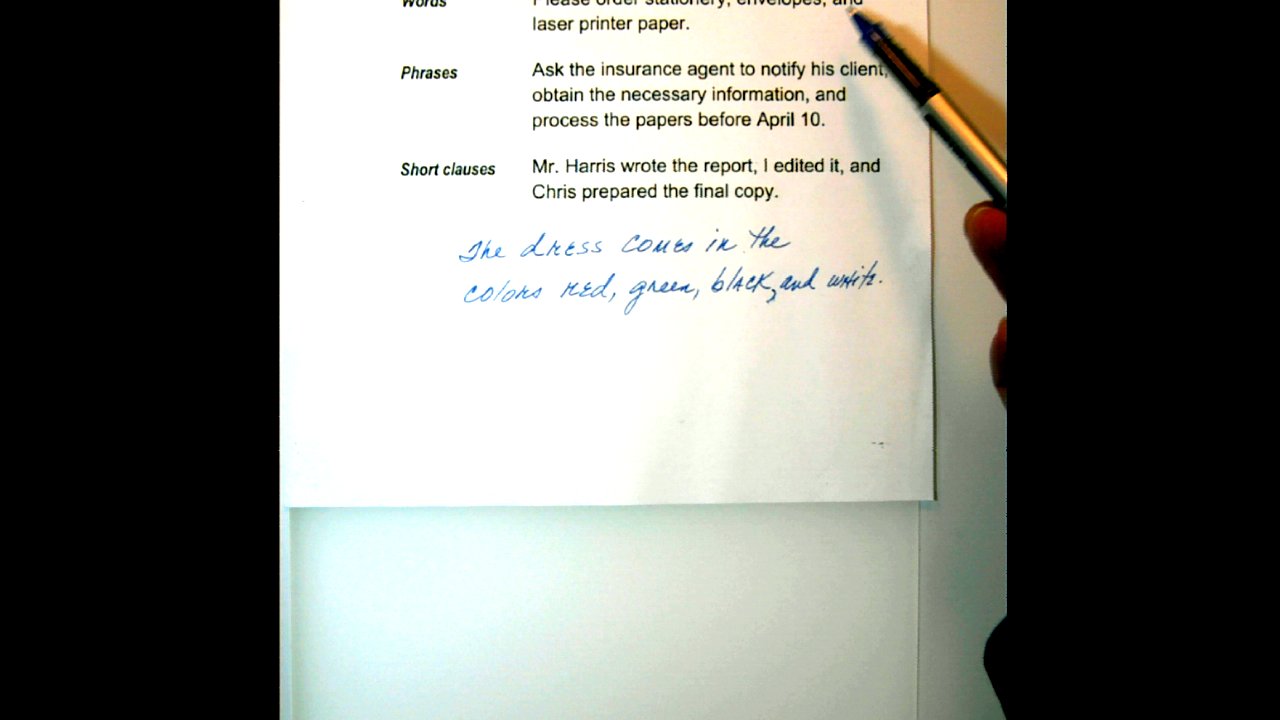 Words
Please order stationery, envelopes, and
laser printer paper.
Phrases
Ask the insurance agent to notify his client,
obtain the necessary information, and
process the papers before April 10.
Short clauses
Mr. Harris wrote the report, I edited it, and
Chris prepared the final copy.
The dress comes in the
colors red, green, black, and white.